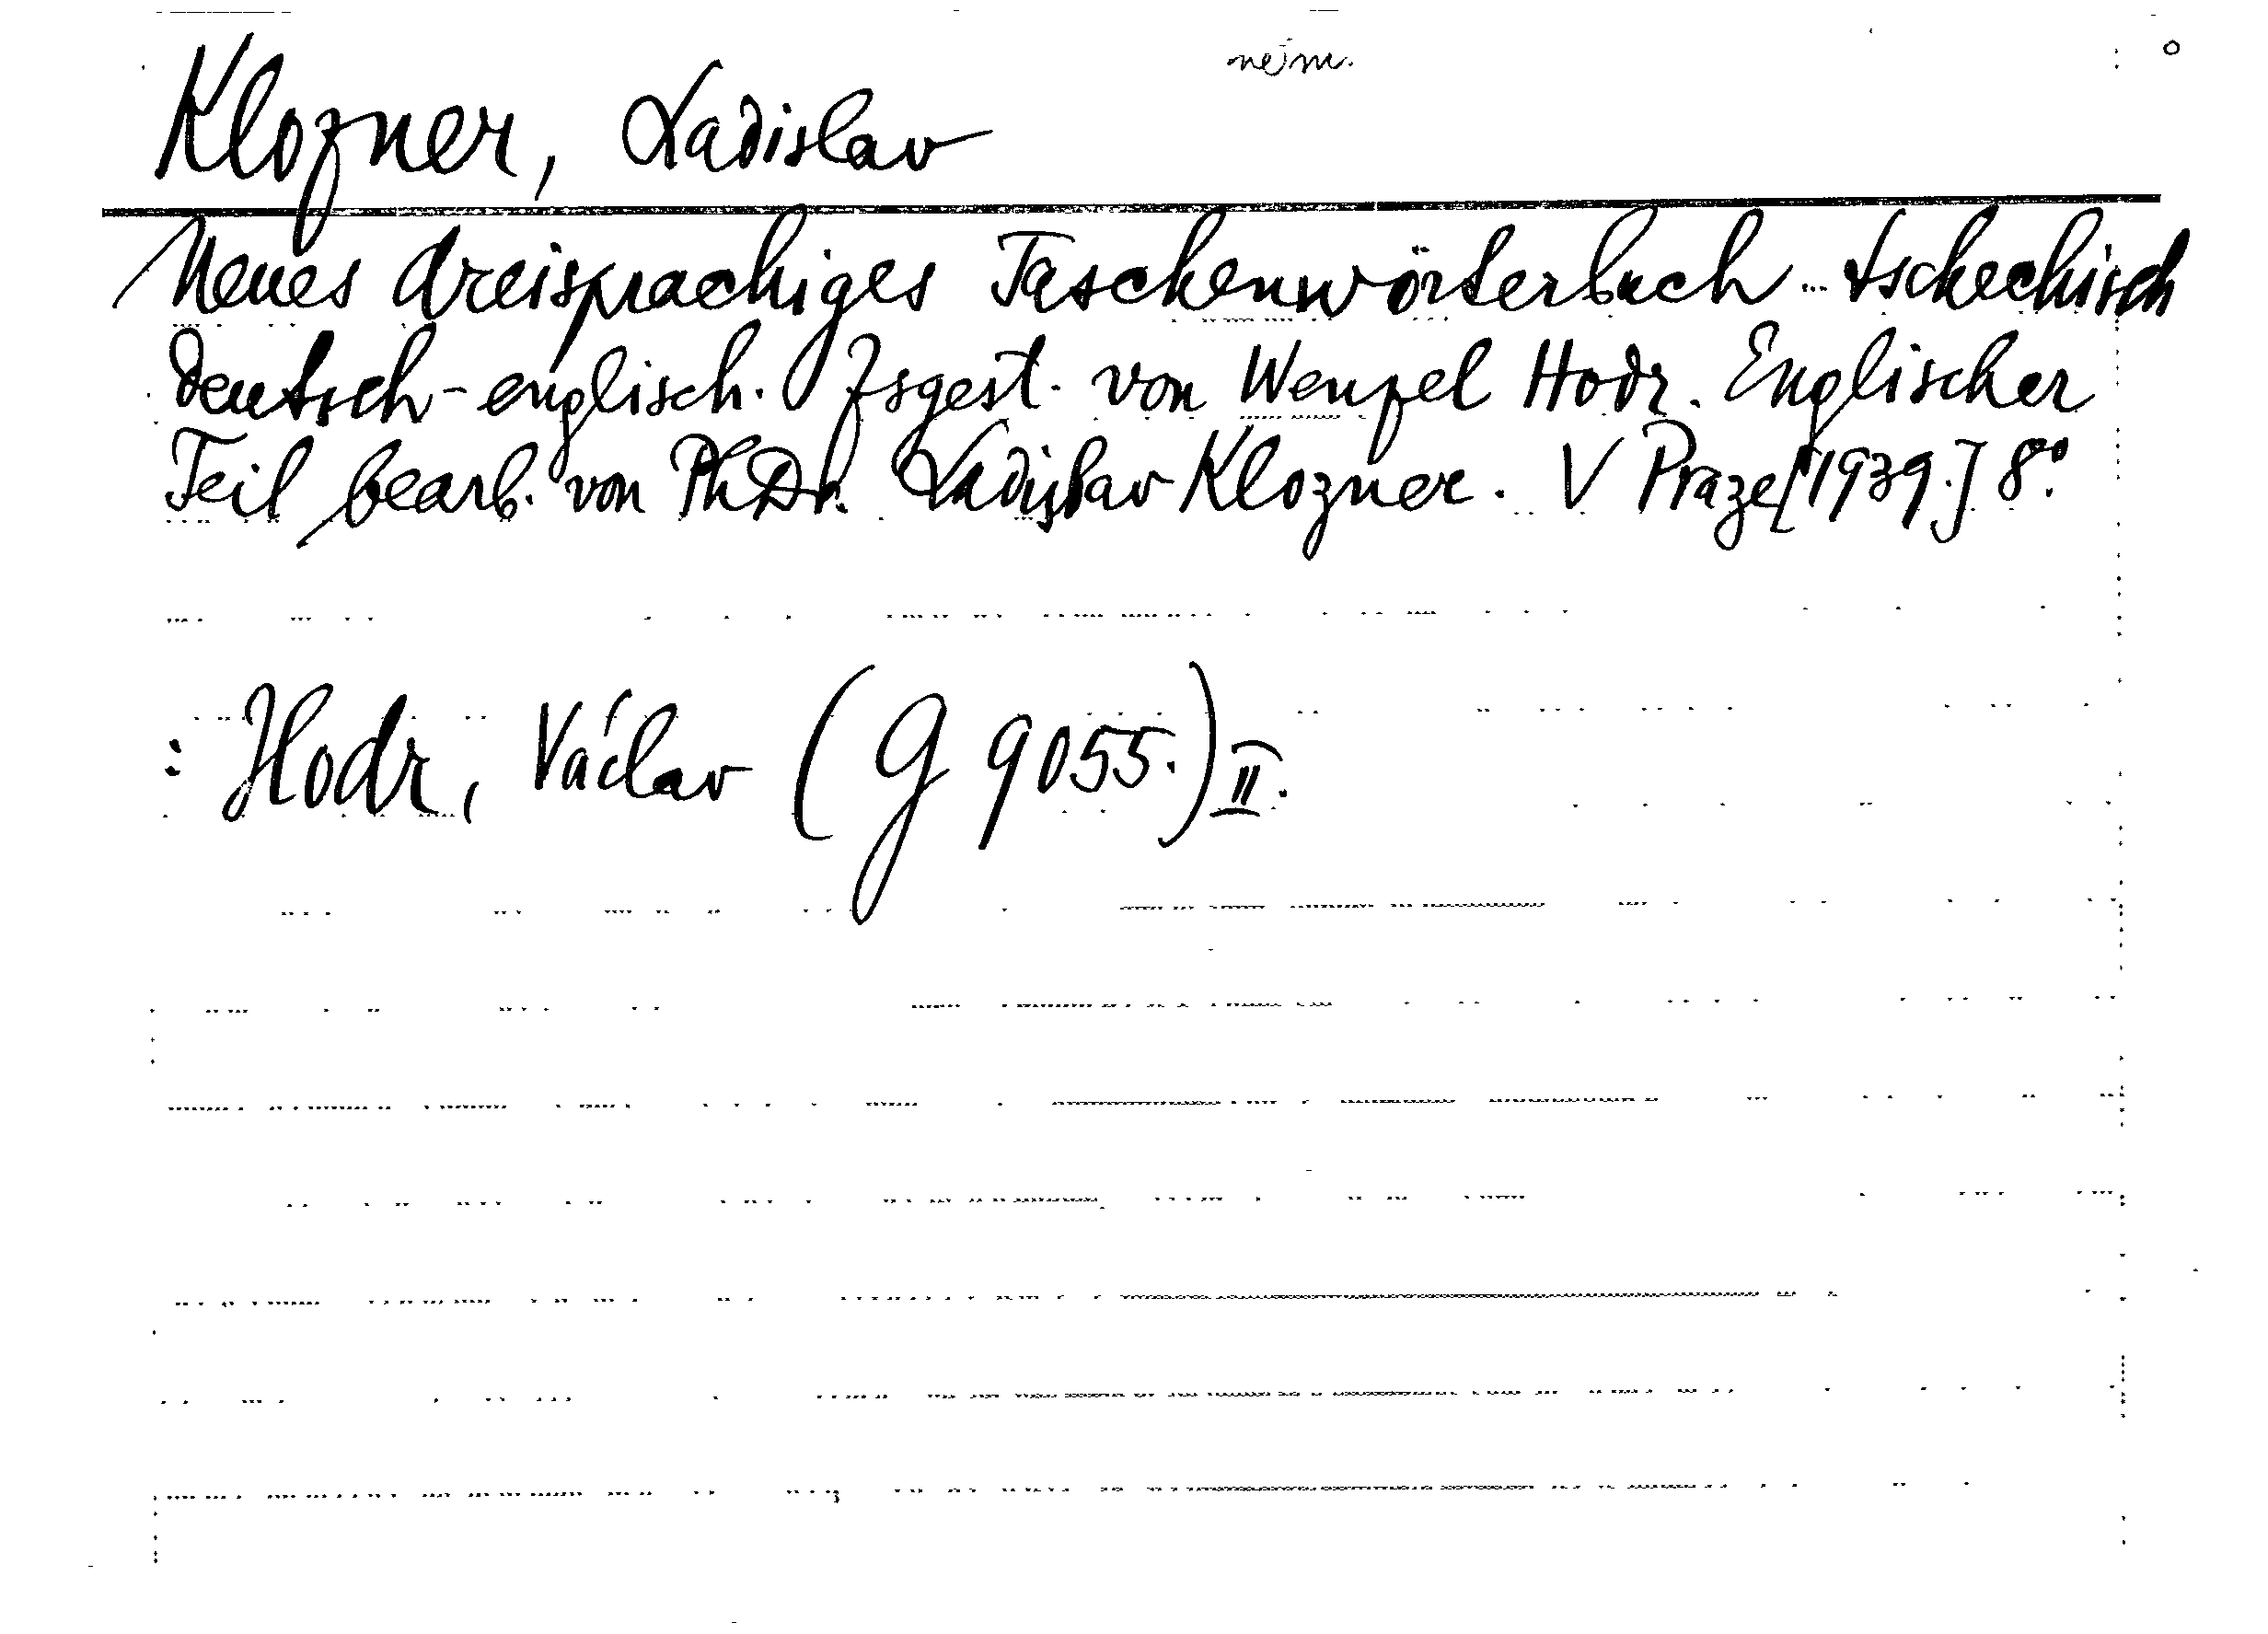 něm.
Klozner, Ladislav
Neues dreisprachiges Taschenwörterbuch tschechisch
deutsch-englisch. Zsgest. von Wenzel Hodr. Englischer
Teil bearb. von PhDr. Ladislav Klozner. V Praze [1939.] 8°.
: Hodr, Václav (G 9055.) II.